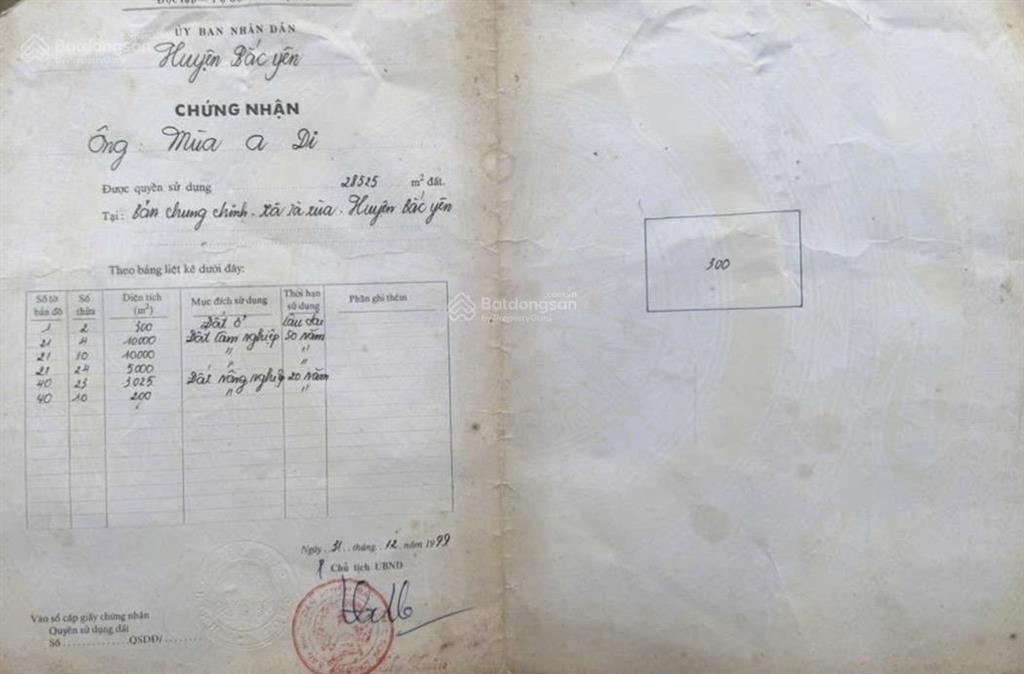 Batdongsan
ỦY BAN NHÂN DÂN
Huyện Bắc yên
CHỨNG NHẬN
Ông: Mùa a Di
Được quyền sử dụng 28525 m² đất.
Tại: bản chung chinh. xã Tà xùa. Huyện bắc yên
Theo bảng liệt kê dưới đây:
Số tờ bản đồ Số thửa Diện tích (m²) Mục đích sử dụng Thời hạn sử dụng Phần ghi thêm
1 2 300 Đất ở Lâu dài
21 4 10000 Đất lâm nghiệp 50 năm
21 10 10000 " "
21 24 5000 " "
40 23 3025 Đất nông nghiệp 20 năm
40 10 200 " "
Ngày 31 tháng 12 năm 1999
Chủ tịch UBND
Vào sổ cấp giấy chứng nhận
Quyền sử dụng đất
Số QSDĐ/
300
Batdongsan.com.vn
by PropertyGuru